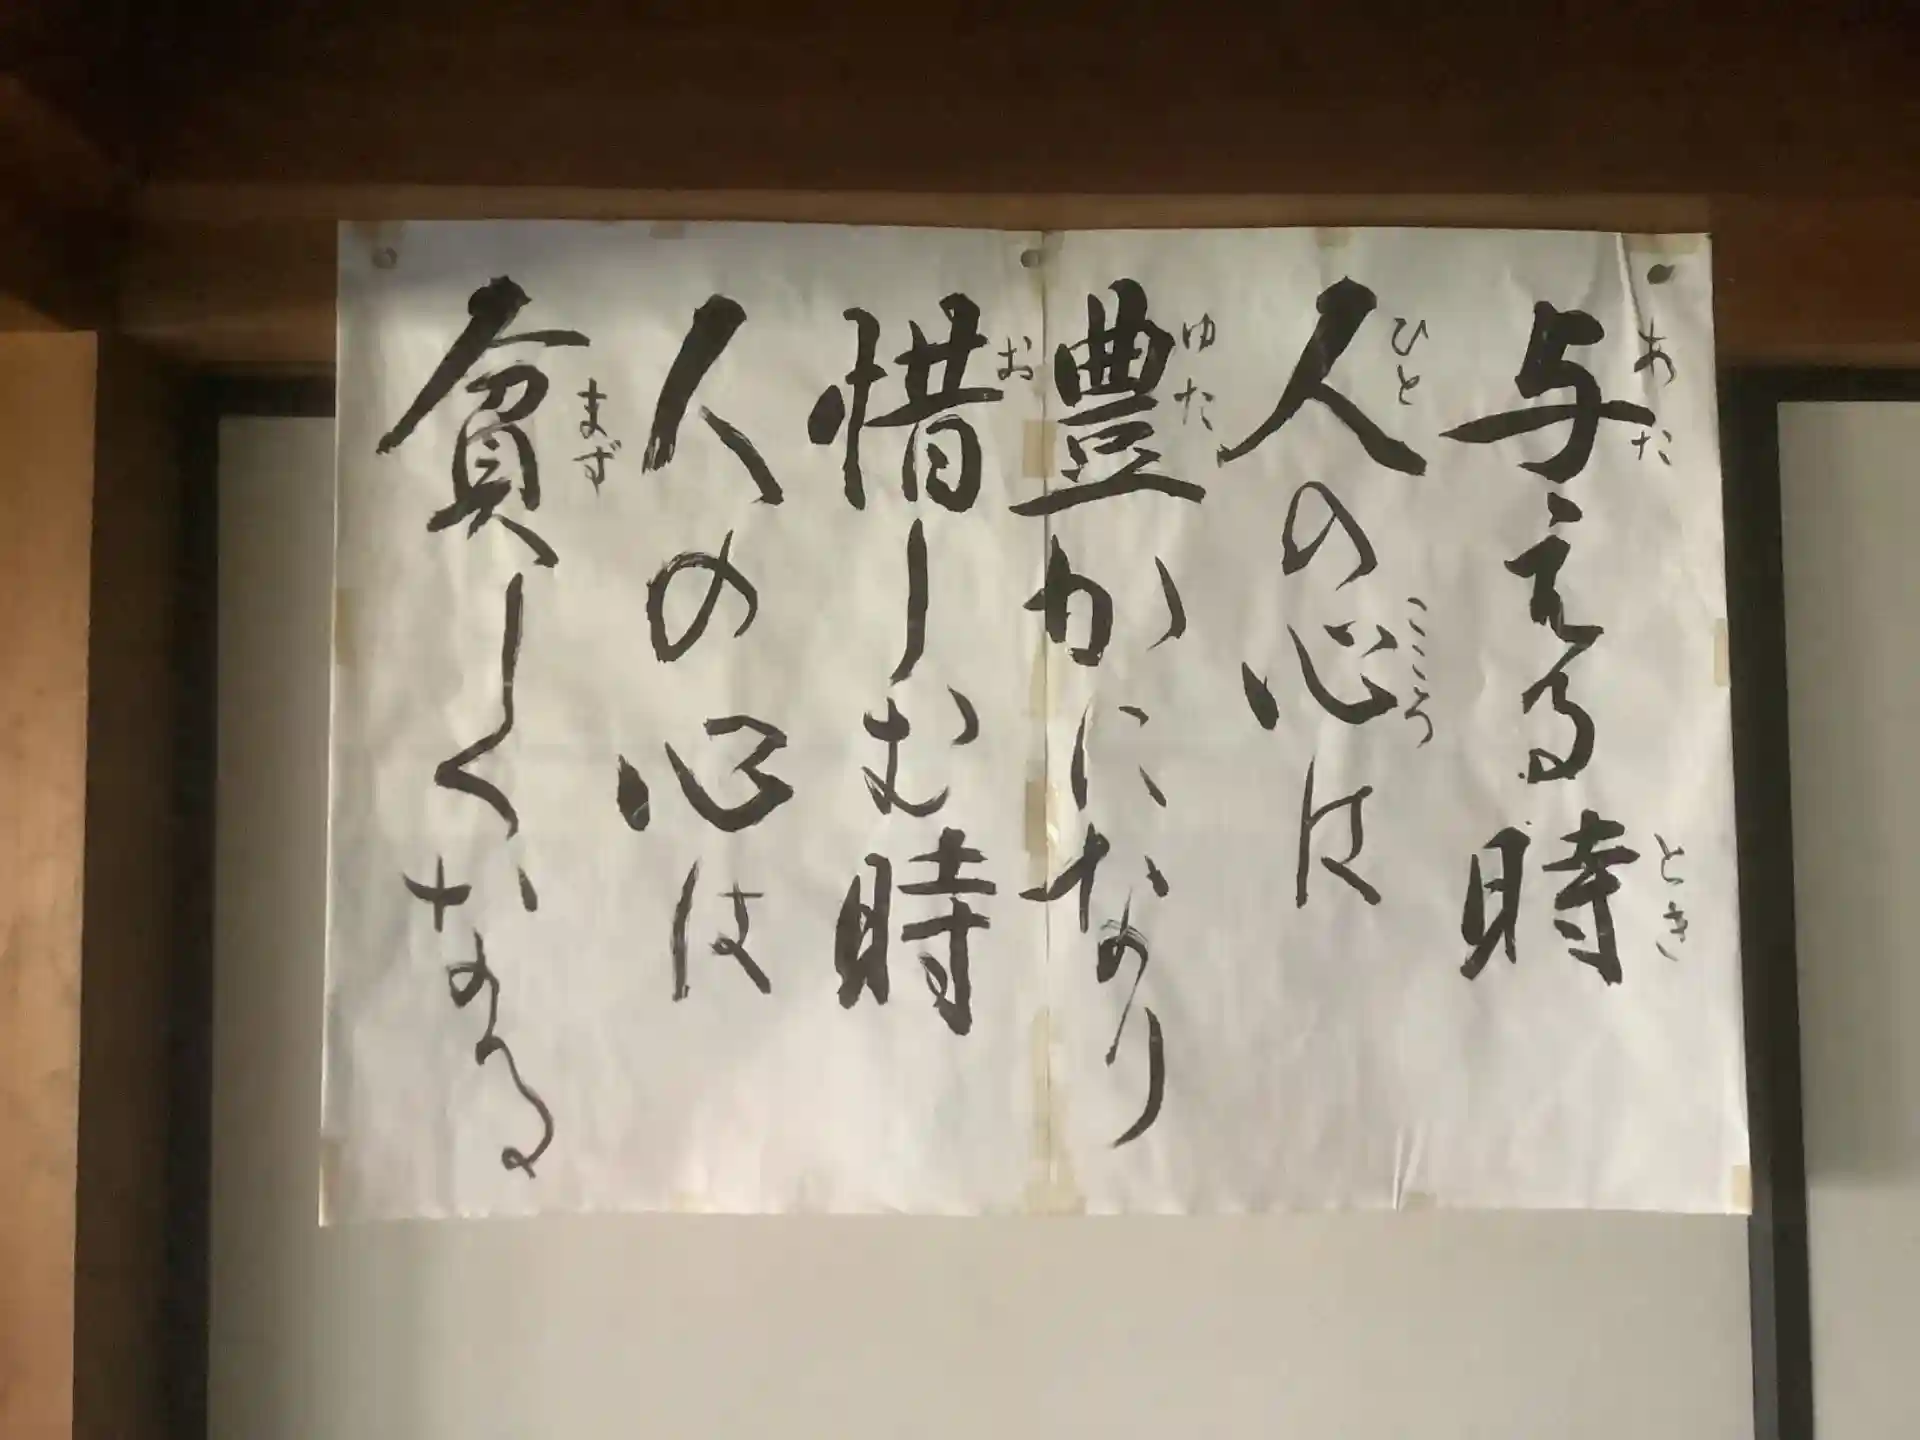 与える時
人の心は
豊かになり
惜しむ時
人の心は
貧しくなる
あた
とき
ひと
こころ
ゆた
お
まず